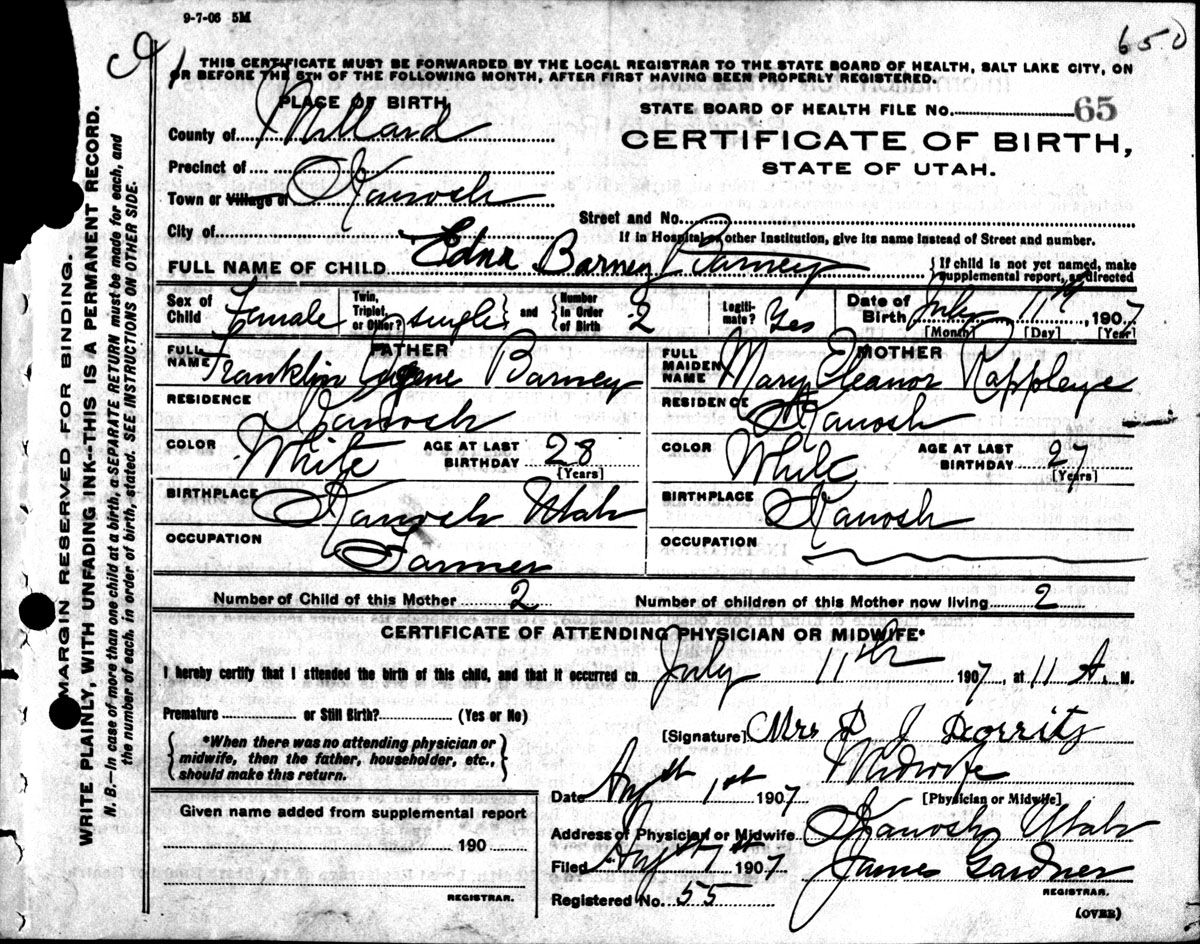 9-7-06 5M
650
THIS CERTIFICATE MUST BE FORWARDED BY THE LOCAL REGISTRAR TO THE STATE BOARD OF HEALTH, SALT LAKE CITY, ON
OR BEFORE THE 5TH OF THE FOLLOWING MONTH, AFTER FIRST HAVING BEEN PROPERLY REGISTERED.
PLACE OF BIRTH
STATE BOARD OF HEALTH FILE No. 65
County of Millard
CERTIFICATE OF BIRTH,
STATE OF UTAH.
Precinct of
Town or Village of Kanosh
Street and No.
City of
If in Hospital or other Institution, give its name instead of Street and number.
FULL NAME OF CHILD Edna Barney Barney
{If child is not yet named, make
supplemental report, as directed
Sex of Child Female Twin, Triplet, or Other? single and Number in Order of Birth 2 Legiti-mate? Yes Date of Birth July 11th, 1907
[Month] [Day] [Year]
FATHER
FULL NAME Franklin Eugene Barney
RESIDENCE Kanosh
COLOR White AGE AT LAST BIRTHDAY 28
[Years]
BIRTHPLACE Kanosh Utah
OCCUPATION Farmer
MOTHER
FULL MAIDEN NAME Mary Eleanor Rappleye
RESIDENCE Kanosh
COLOR White AGE AT LAST BIRTHDAY 27
[Years]
BIRTHPLACE Kanosh
OCCUPATION
Number of Child of this Mother 2 Number of children of this Mother now living 2
CERTIFICATE OF ATTENDING PHYSICIAN OR MIDWIFE*
I hereby certify that I attended the birth of this child, and that it occurred on July 11th 1907, at 11 A. M.
Premature or Still Birth? (Yes or No)
{*When there was no attending physician or
midwife, then the father, householder, etc.,
should make this return.}
[Signature] Mrs J Dorrity
Midwife
[Physician or Midwife]
Date 1st 1907
Address of Physician or Midwife Kanosh Utah
Filed 1907 James Gardner
REGISTRAR.
Registered No. 55
(OVER)
Given name added from supplemental report
190
REGISTRAR.
MARGIN RESERVED FOR BINDING.
WRITE PLAINLY, WITH UNFADING INK—THIS IS A PERMANENT RECORD.
N. B.—In case of more than one child at a birth, a SEPARATE RETURN must be made for each, and
the number of each, in order of birth, stated. SEE INSTRUCTIONS ON OTHER SIDE.